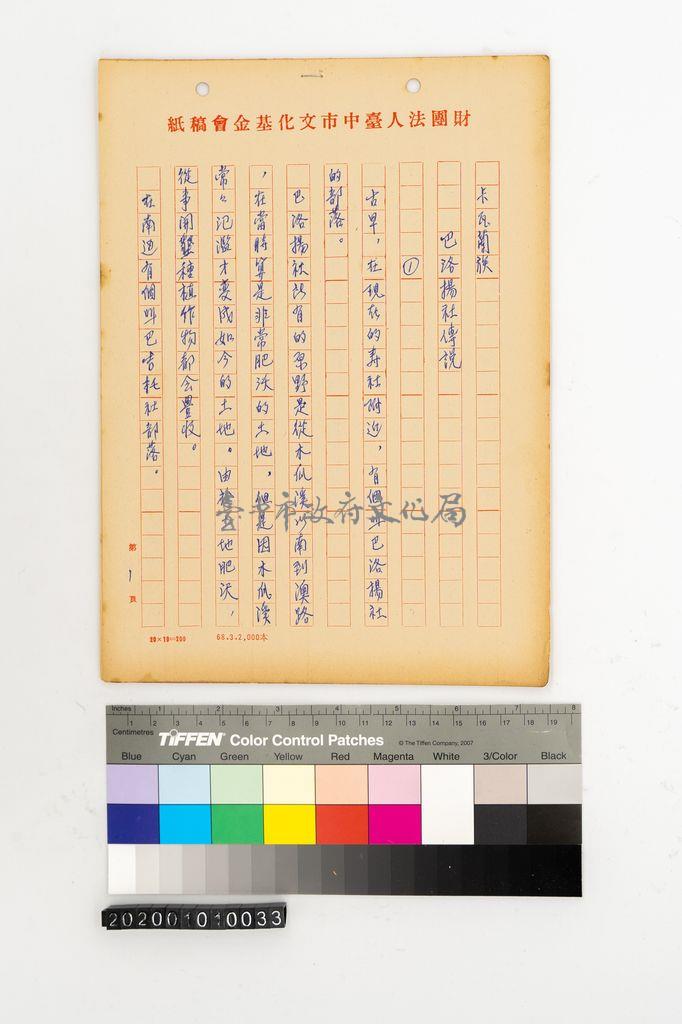 財團法人臺中市文化基金會稿紙
卡瓦蘭族
巴洛揚社傳說
①
古早，在現在的寿社附近，有個叫巴洛揚社
的部落。
巴洛揚社所有的原野是從木瓜溪以南到澳路
，在當時算是非常肥沃的土地，但是因木瓜溪
常々氾濫才變成如今的土地。由於 地肥沃，
從事開墾種植作物都会豐收。
在南边有個叫巴 耗社部落。
第1頁
20×10=200
68.3.2,000本
臺中市政府文化局
Inches 1 2 3 4 5 6 7 8
Centimetres 1 2 3 4 5 6 7 8 9 10 11 12 13 14 15 16 17 18 19
TIFFEN Color Control Patches © The Tiffen Company, 2007
Blue Cyan Green Yellow Red Magenta White 3/Color Black
202001010033